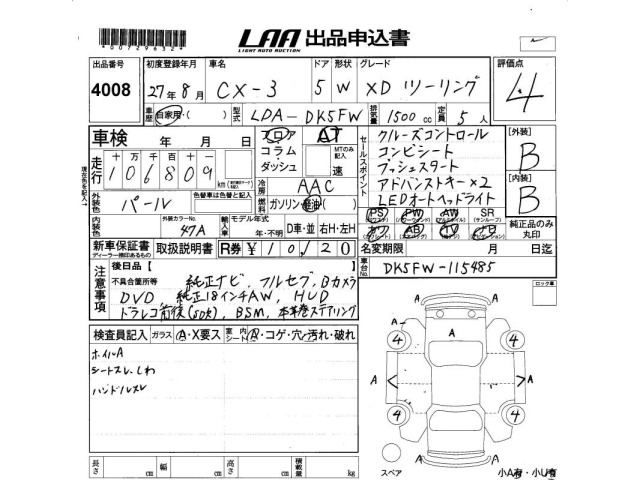 4007296324
LAA 出品申込書
LIGHT AUTO AUCTION
出品番号 初度登録年月 車名 ドア 形状 グレード 評価点
4008 27年8月 CX-3 5 W XD ツーリング 4
車歴 自家用・( ) 型式 LDA-DK5FW 排気量 1500cc 定員 5人
車検 年 月 日 フロア AT
コラム・ダッシュ MTのみ記入 速
セールスポイント
クルーズコントロール
コンビシート
プッシュスタート
アドバンストキー×2
LEDオートヘッドライト
[外装] B
[内装] B
現在の距離を記入
走行 十万千百十
106809 km
冷房 AAC
外装色 パール 色替車は色替と記入 燃料 ガソリン・軽油( )
PS PW AW SR
カワ AB TV ナビ
純正品のみ丸印
外装カラーNo. 47A 輸入車 モデル年式 年・不明 D車・並 右H・左H
新車保証書 取扱説明書 R券 ¥10,20
ディーラー捺印あるもの
名変期限 月 日迄
車台No. DK5FW-115485
注意事項
後日品【 】
不具合箇所等 純正ナビ、フルセグ、Bカメラ
DVD 純正18インチAW、HUD
ドラレコ前後(50水)、BSM、本革巻ステアリング
ロック車
検査員記入 ガラス A・X要ス 室内シート A・コゲ・穴・汚れ・破れ
ホイルA
シートスレ、しわ
ハンドルスレ
A A
4 4
A A A
4 4
A A
スペア
小A有・小U有
長さ cm 幅 cm 高さ cm 積載量 kg